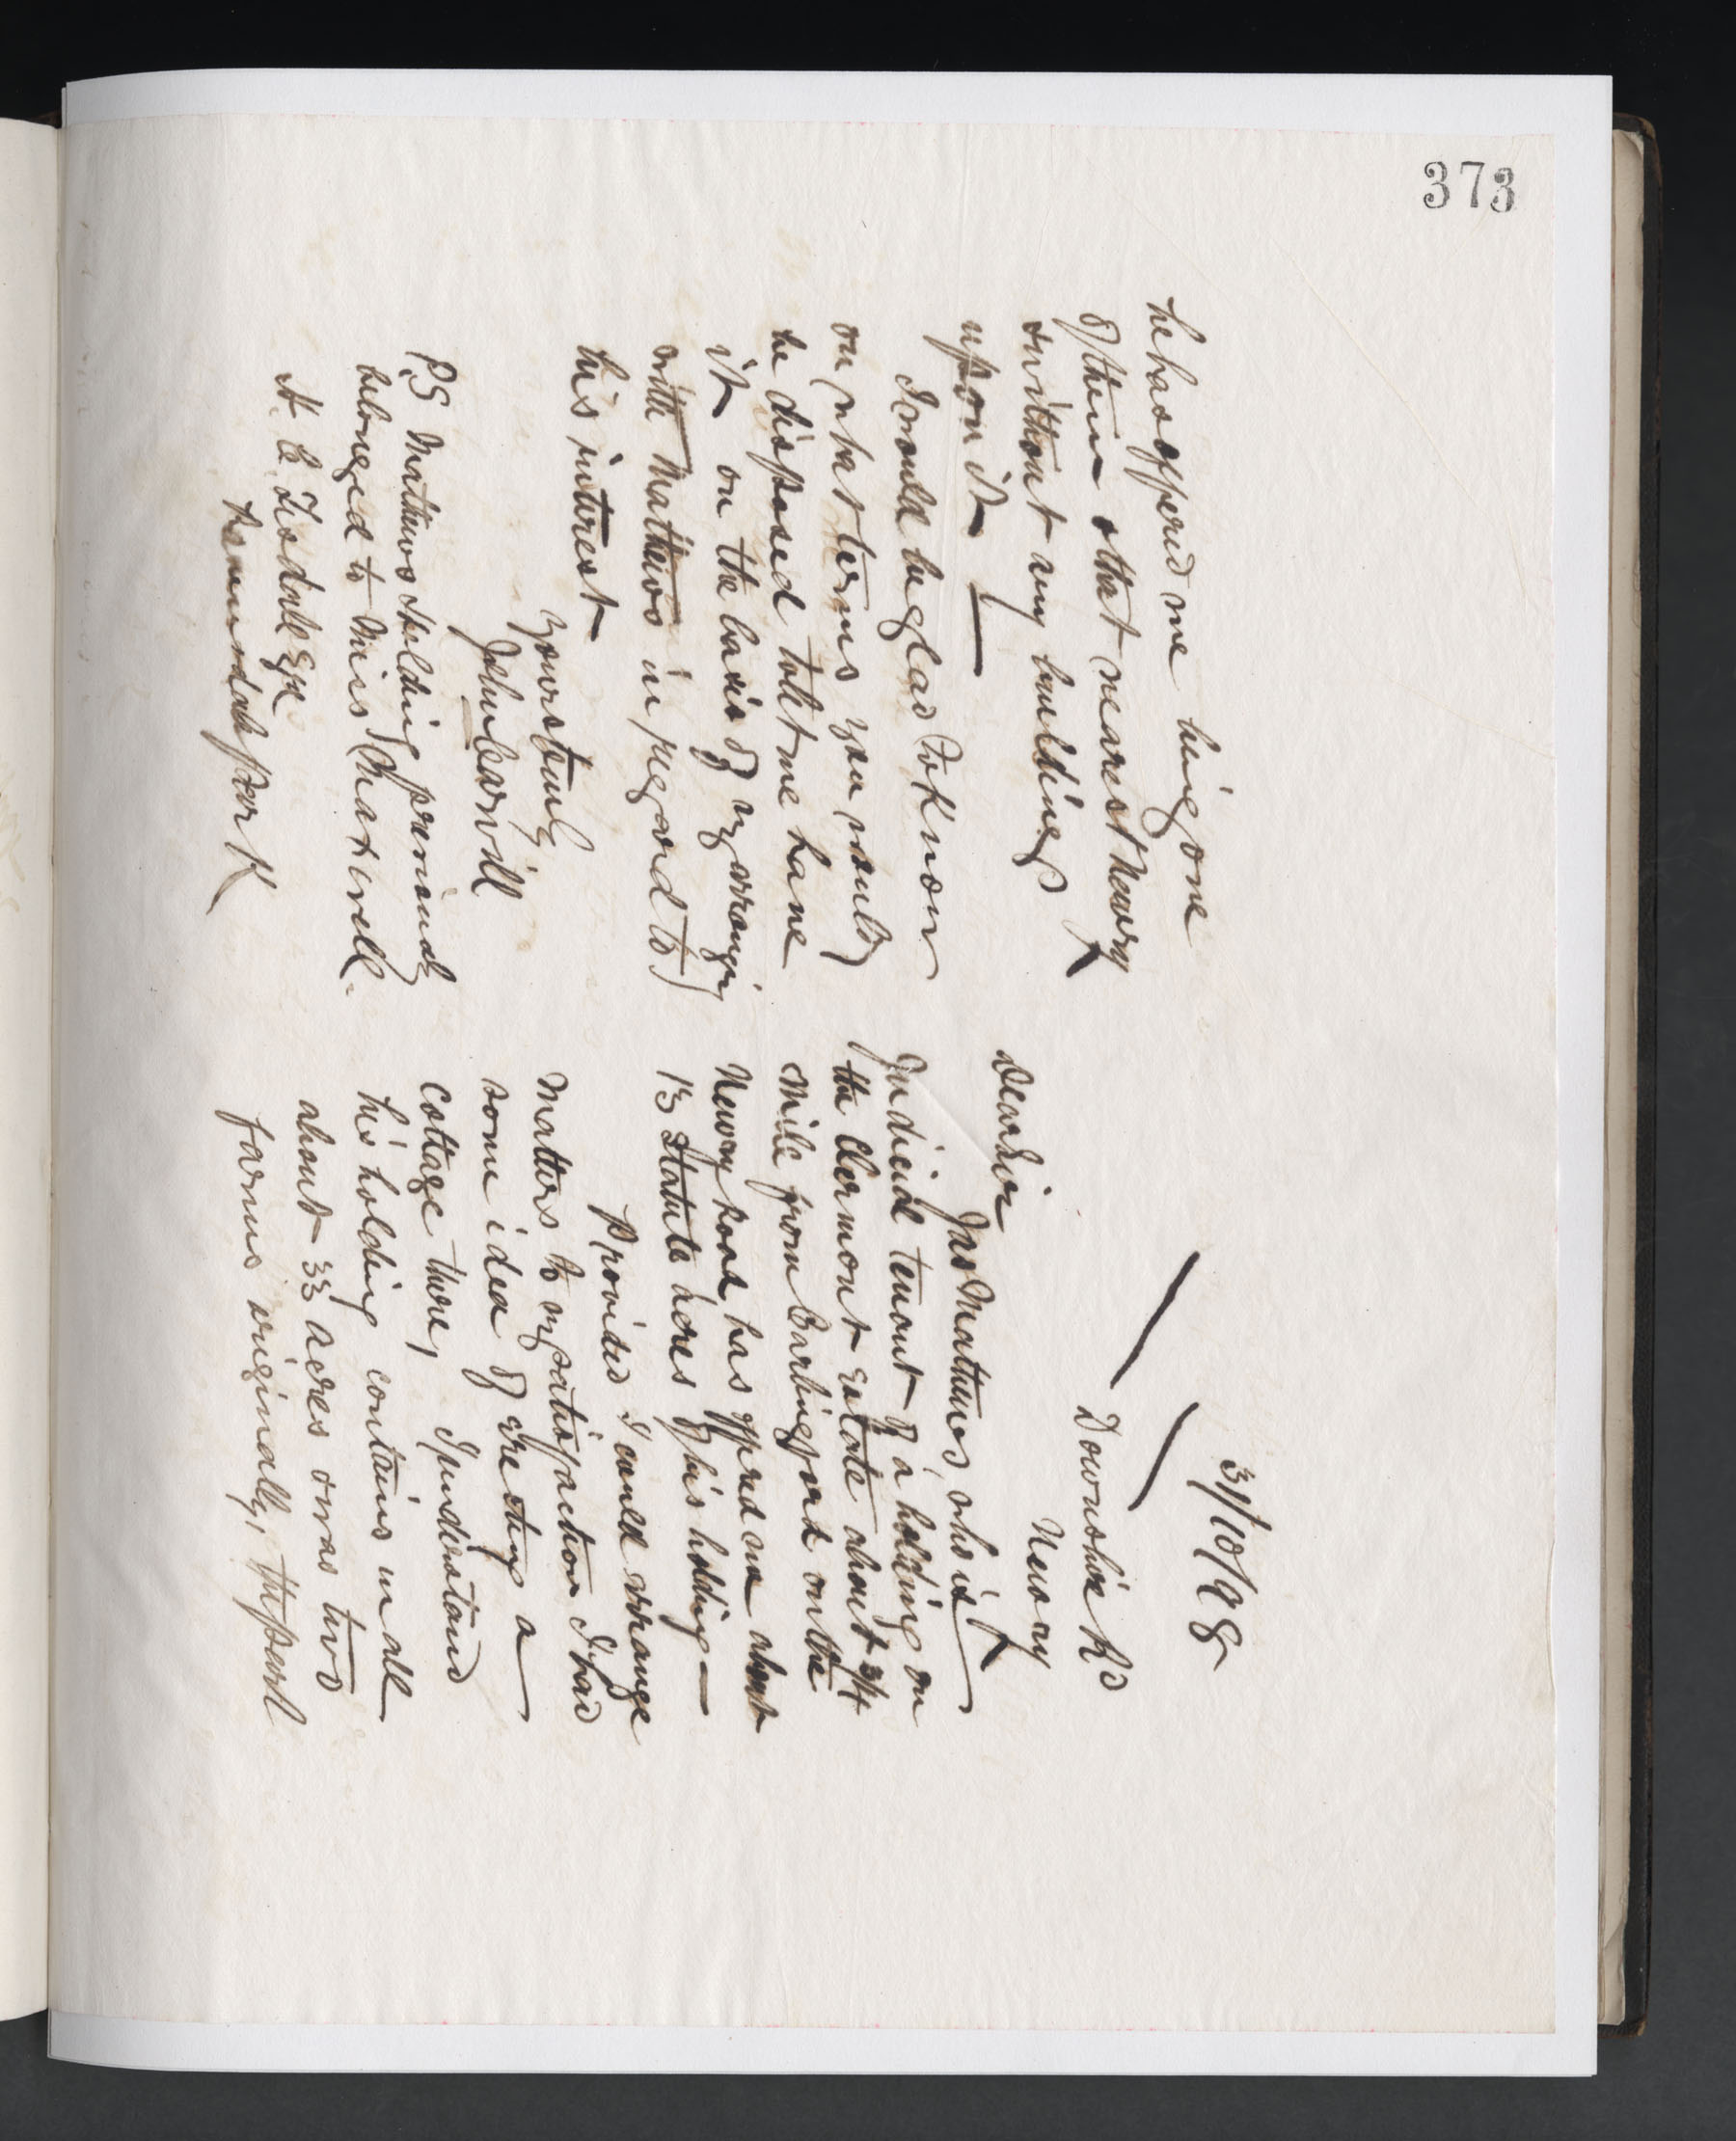 373
31/10/98
Downshire Rd
Newry
Dear Sir
Jas Mathews, who is
Judicial tenant of a holding on
the Clermont Estate about 3/4
mile from Carlingford on the
Newry Road has offered me about
13 Statute acres of his holding —
Provided I could arrange
matters to my satisfaction I had
some idea of erecting a
cottage there, I understand
his holding contains in all
about 33 acres & was two
farms originally, the part
he has offered me being one
of them & that nearest Newry
& without any buildings
upon it —
I would be glad to know
on what terms you would
be disposed to let me have
it on the basis of my arranging
with Mathews in regard to
his interest
Yours truly
John Carvill
P.S Mathews Holding previously
belonged to Miss Maxwell.
Esqr